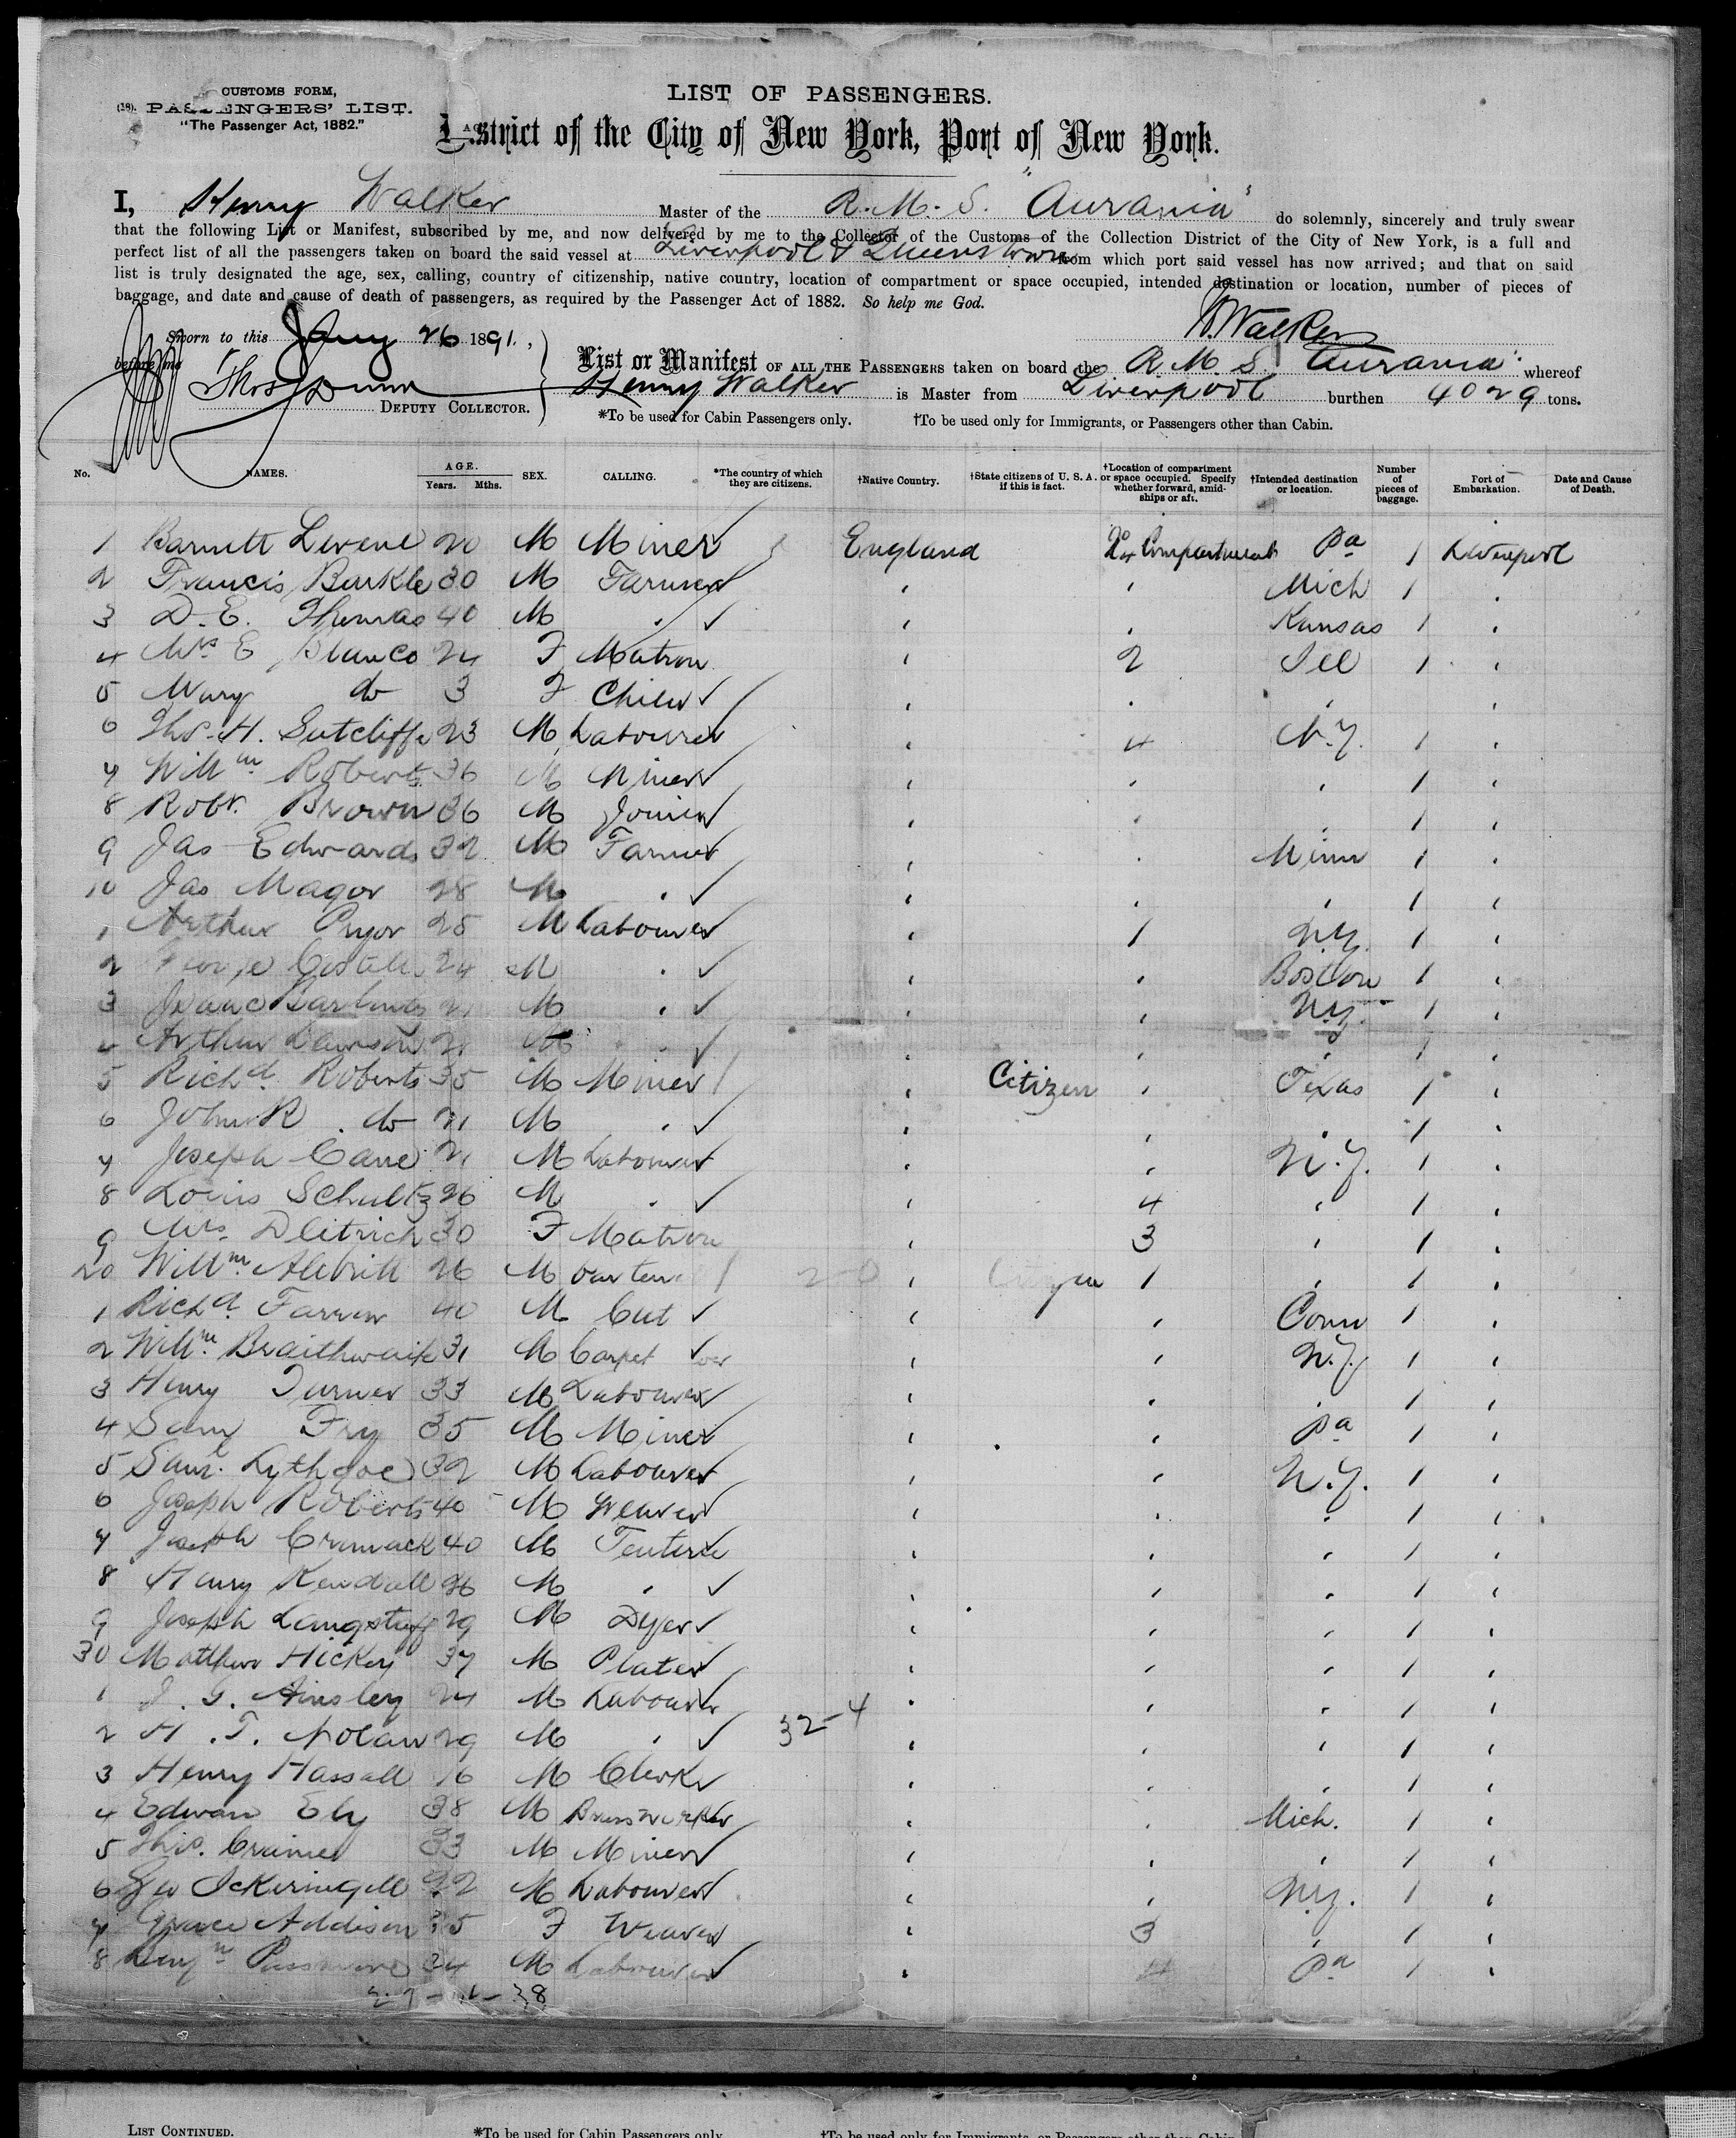 CUSTOMS FORM,
(18). PASSENGERS' LIST.
"The Passenger Act, 1882."
LIST OF PASSENGERS.
District of the City of New York, Port of New York.
I, Henry Walker Master of the R.M.S. "Aurania" do solemnly, sincerely and truly swear
that the following List or Manifest, subscribed by me, and now delivered by me to the Collector of the Customs of the Collection District of the City of New York, is a full and
perfect list of all the passengers taken on board the said vessel at Liverpool & Queenstown from which port said vessel has now arrived; and that on said
list is truly designated the age, sex, calling, country of citizenship, native country, location of compartment or space occupied, intended destination or location, number of pieces of
baggage, and date and cause of death of passengers, as required by the Passenger Act of 1882. So help me God.
H. Walker
Sworn to this Jany 26 1891.,
before me
Thos Dunn
DEPUTY COLLECTOR.
List or Manifest OF ALL THE PASSENGERS taken on board the R.M.S. Aurania whereof
Henry Walker is Master from Liverpool burthen 4029 tons.
*To be used for Cabin Passengers only. †To be used only for Immigrants, or Passengers other than Cabin.
No. NAMES. AGE. Years. Mths. SEX. CALLING. *The country of which they are citizens. †Native Country. †State citizens of U.S.A. if this is fact. †Location of compartment or space occupied. Specify whether forward, amidships or aft. †Intended destination or location. Number of pieces of baggage. Port of Embarkation. Date and Cause of Death.
1 Barnett Levene 20 M Miner England Compartment Pa 1 Liverpool
2 Francis Burkle 30 M Farmer " " Mich 1 "
3 D. E. Thomas 40 M " " " Kansas 1 "
4 Mrs E Blanco 24 F Matron " 2 Ill 1 "
5 Mary do 3 F Child " " " "
6 Thos. H. Sutcliffe 23 M Labourer " 4 N.Y. 1 "
7 Willm Roberts 36 M Miner " " " 1 "
8 Robt. Brown 36 M Joiner " " " 1 "
9 Jas Edwards 32 M Farmer " " Minn 1 "
10 Jas Magor 28 M " " " " 1 "
1 Arthur Pryor 25 M Labourer " 1 N.Y. 1 "
2 24 M " " " Boston 1 "
3 Isaac 21 M " " " N.Y. 1 "
4 Arthur Lawson 21 M " " " " 1 "
5 Richd. Roberts 35 M Miner " Citizen " Texas 1 "
6 John R do 21 M " " " " 1 "
7 Joseph Cane 21 M Labourer " " N.Y. 1 "
8 Louis Schultz 26 M " " 4 " 1 "
9 Mrs Deitrich 30 F Matron " 3 " 1 "
20 Willm. 26 M " Citizen 1 " 1 "
1 Richd. Farrow 40 M Cut " " Conn 1 "
2 Willm. Braithwaite 31 M Carpet " " N.Y. 1 "
3 Henry Turner 33 M Labourer " " " 1 "
4 Saml Fry 35 M Miner " " Pa 1 "
5 Saml. Lythgoe 32 M Labourer " " N.Y. 1 "
6 Joseph Roberts 40 M Weaver " " " 1 "
7 Joseph Cromack 40 M Tenterer " " " 1 "
8 Henry Kendall 26 M " " " " 1 "
9 Joseph Langstaff 29 M Dyer " " " 1 "
30 Matthew Hickey 37 M Plater " " " 1 "
1 J. G. Ainsley 24 M Labourer " " " 1 "
2 H. T. Nolan 29 M " 32-4 " " " 1 "
3 Henry Hassall 16 M Clerk " " " 1 "
4 Edwan Ely 38 M Brassworker " " Mich. 1 "
5 Thos. Craine 33 M Miner " " " 1 "
6 Geo Ickeringill 22 M Labourer " " N.Y. 1 "
7 Grace Addison 35 F Weaver " 3 " 1 "
8 Benjn Passmore 34 M Labourer " 4 Pa 1 "
38
LIST CONTINUED. *To be used for Cabin Passengers only. †To be used only for Immigrants, or Passengers other than Cabin.